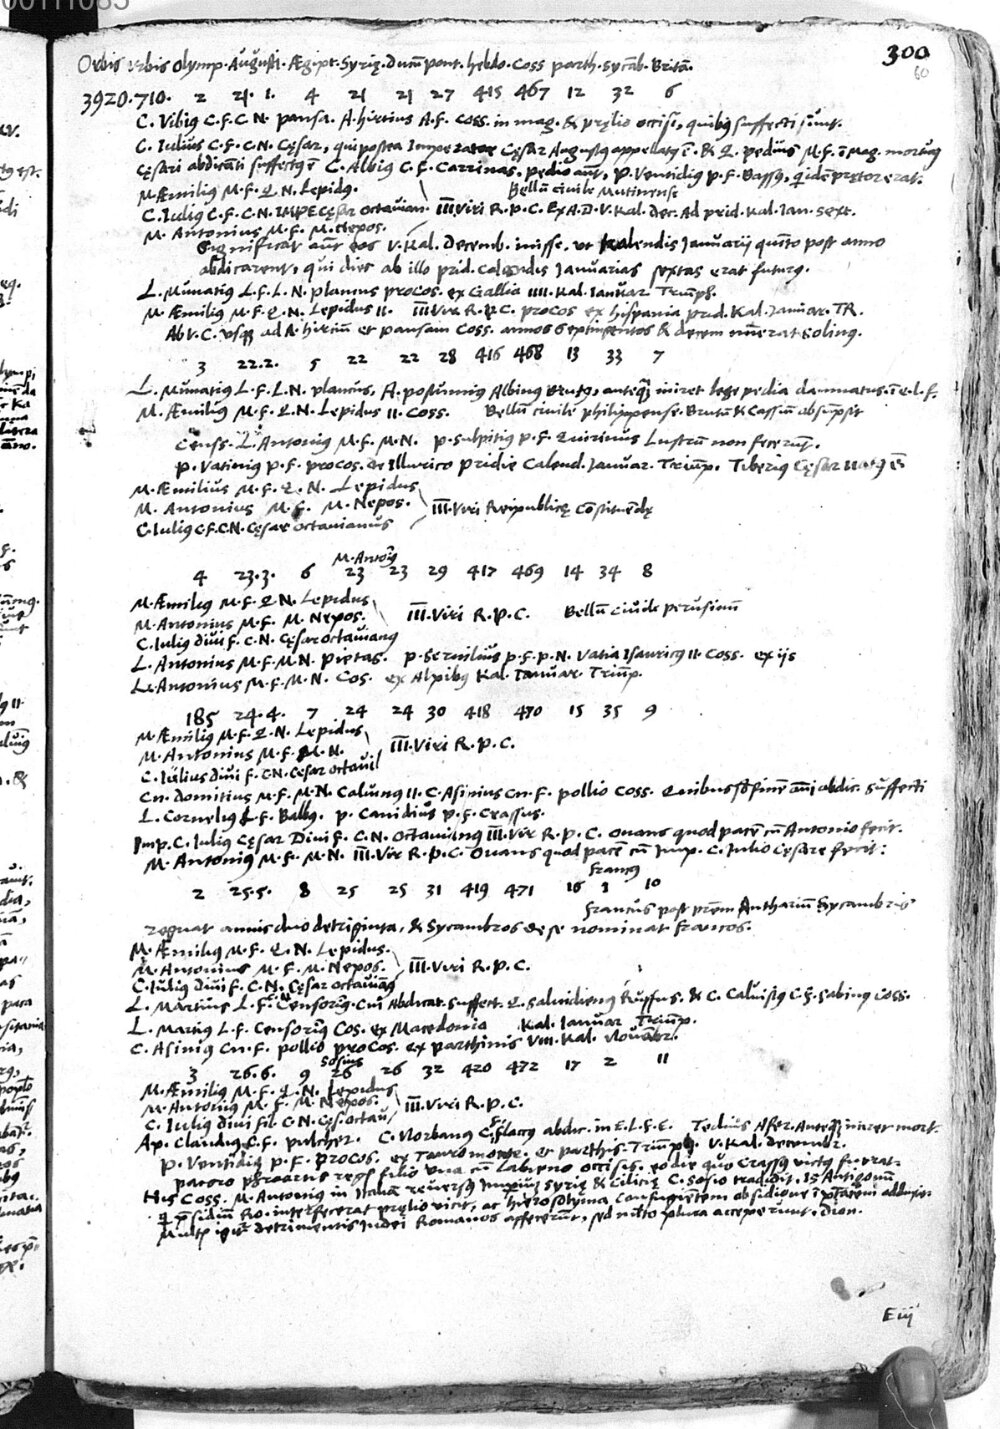 00111085
300
60
Orbis urbis olymp. Augusti. Ægipt. Syrię. Dum̃ pont. hebdo. Coss parth. sycãb. Britã.
3920. 710. 2 21. 1. 4 21 21 27 415 467 12 32 6
C. Vibiꝰ C. F. C. N. pansa. A. hirtius A. F. Coss. in mag. & pręlio occisi, quibꝰ suffecti sunt.
C. Iulius C. F. C. N. Cęsar, qui postea Imperator Cęsar Augustꝰ appellatꝰ ē. & Q. pedius M. F. ĩ mag. mortuꝰ
Cęsari abdicãti suffectꝰ ē C. Albiꝰ C. F. Carrinas. pedio aut̃, P. Ventidiꝰ P. F. Bassꝰ, q idẽ pretor erat.
M. Æmilius M. F. Q. N. Lepidꝰ. Bellũ civile Mutinense
C. Iuliꝰ C. F. C. N. IMPE Cęsar octavian. III. Viri R. P. C. Ex A. D. V. Kal. dec. Ad prid. Kal. Ian. sext.
M. Antonius M. F. M. Nepos.
Significat aut̃ eos V. Kal. Decemb. inisse, ut Kalendis Ianuarij quĩto post anno
abdicarent, qui dies ab illo prid. Calendis Ianuarias sextas erat futurꝰ.
L. Munatiꝰ L. F. L. N. plancus procos. ex Gallia IIII. Kal. Ianuar. Triũph.
M. Æmilius M. F. Q. N. Lepidus II. III. Vir R. P. C. procos ex hispania prid. Kal. Ianuar. TR.
Ab V. C. usq; ad A. hirtiũ et pansam Coss. annos septingentos & decem numerat Solinꝰ.
3 22. 2. 5 22 22 28 416 468 13 33 7
L. Munatiꝰ L. F. L. N. plancus, A. postumius Albinꝰ Brutꝰ, anteq̃ iniret lege pedia damnatus. ĩ e. l. f.
M. Æmiliꝰ M. F. Q. N. Lepidus II. Coss. Bellũ civile philippense. Brutũ & Cassiũ absũpsit
Censs. L. Antoniꝰ M. F. M. N. P. Sulpitiꝰ P. F. Quirinus Lustrũ non fecerũt.
P. Vatinius P. F. procos. de Illurico pridie Calend. Ianuar. Triũp. Tiberiꝰ Cęsar natꝰ ē
M. Æmilius M. F. Q. N. Lepidus
M. Antonius M. F. M. Nepos. III. Viri Reipublicę Cõstituẽdę
C. Iuliꝰ C. F. C. N. Cęsar octavianus
M. Antoñ
4 23. 3. 6 23 23 29 417 469 14 34 8
M. Æmiliꝰ M. F. Q. N. Lepidus
M. Antonius M. F. M. Nepos. III. Viri R. P. C. Bellũ civile perusinũ
C. Iuliꝰ divi F. C. N. Cęsar octavianꝰ
L. Antonius M. F. M. N. Pietas. P. Servilius P. F. P. N. Vatia Isauricꝰ II. Coss. ex ijs
L. Antonius M. F. M. N. Cos. ex Alpibꝰ Kal. Ianuar. Triũp.
185 24. 4. 7 24 24 30 418 470 15 35 9
M. Æmiliꝰ M. F. Q. N. Lepidus
M. Antonius M. F. M. N. III. Viri R. P. C.
C. Iulius divi F. C. N. Cęsar octavi
Cn. domitius M. F. M. N. Calvinꝰ II. C. Asinius Cn. F. pollio Coss. Quibus sub finẽ ani abdic. suffecti
L. Corneliꝰ L. F. Balbꝰ. P. Canidius P. F. Crassus.
Imp. C. Iuliꝰ Cęsar Divi F. C. N. Octavianꝰ III. Vir R. P. C. Ovans quod pacẽ cũ Antonio fecit.
M. Antonius M. F. M. N. III. Vir R. P. C. Ovans quod pacẽ cũ Imp. C. Iulio Cęsare fecit:
Francꝰ
2 25. 5. 8 25 25 31 419 471 16 1 10
Francus post prẽm Antharium Sycambris
regnat annis duo de triginta, & Sycambros de se nominat Francos.
M. Æmilius M. F. Q. N. Lepidus.
M. Antonius M. F. M. Nepos. III. Viri R. P. C.
C. Iuliꝰ divi F. C. N. Cęsar octavianꝰ
L. Martius L. F. C. N. Censorinꝰ. Cui Abdicat. suffect. Q. Salvidienꝰ Ruffus. & C. Calvisiꝰ C. F. Sabinꝰ Coss.
L. Martiꝰ L. F. Censorinꝰ Cos. ex Macedonia Kal. Ianuar. Triũp.
C. Asiniꝰ Cn. F. pollio proCos. ex parthinis VIII. Kal. Novẽbr.
Sosius
3 26. 6. 9 26 26 32 420 472 17 2 11
M. Æmiliꝰ M. F. Q. N. Lepidus
M. Antonius M. F. M. Nepos. III. Viri R. P. C.
C. Iuliꝰ divi fil. C. N. Cęs. octav
Ap. Claudius C. F. pulcher. C. Norbanꝰ C. F. Flaccꝰ abdic. in E. L. F. E. Tedius Afer. Anteq̃ iniret mort.
P. Ventidiꝰ P. F. Procos. ex Tauro monte. et parthis. Triũph. V. Kal. decembr.
pacoro phraartis regis filio una cũ Labieno occisis, eo die quo Crassꝰ victꝰ fuerat.
His Coss. M. Antonius in Italiã reversꝰ Syrię & Cilicię C. Sosio tradidit. Is Antigonũ
q pręsidiũ Ro. interfecerat pręlio vicit, ac hierosolyma confugiẽtem obsidione
Multis igit̃ detrimentis Iudei Romanos affecerũt, sed multo plura acceperunt. Dion.
E iij